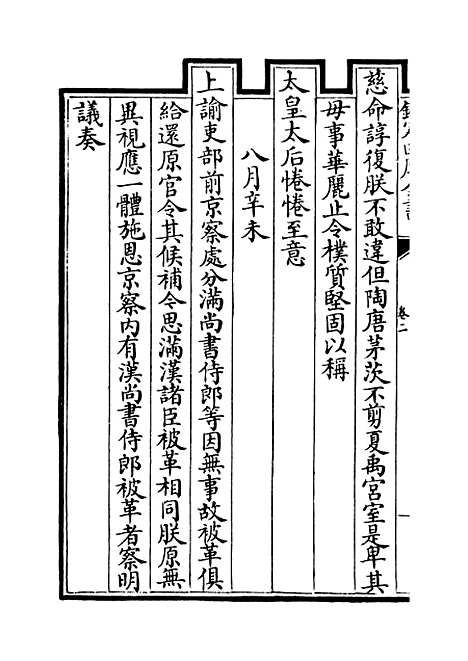 慈命諄復朕不敢違但陶唐茅茨不剪夏禹宮室是卑其
毋事華麗止令樸質堅固以稱
太皇太后惓惓至意
八月辛未
上諭吏部前京察處分滿尚書侍郎等因無事故被革俱
給還原官令其候補今思滿漢諸臣被革相同朕原無
異視應一體施恩京察內有漢尚書侍郎被革者察明
議奏
卷二